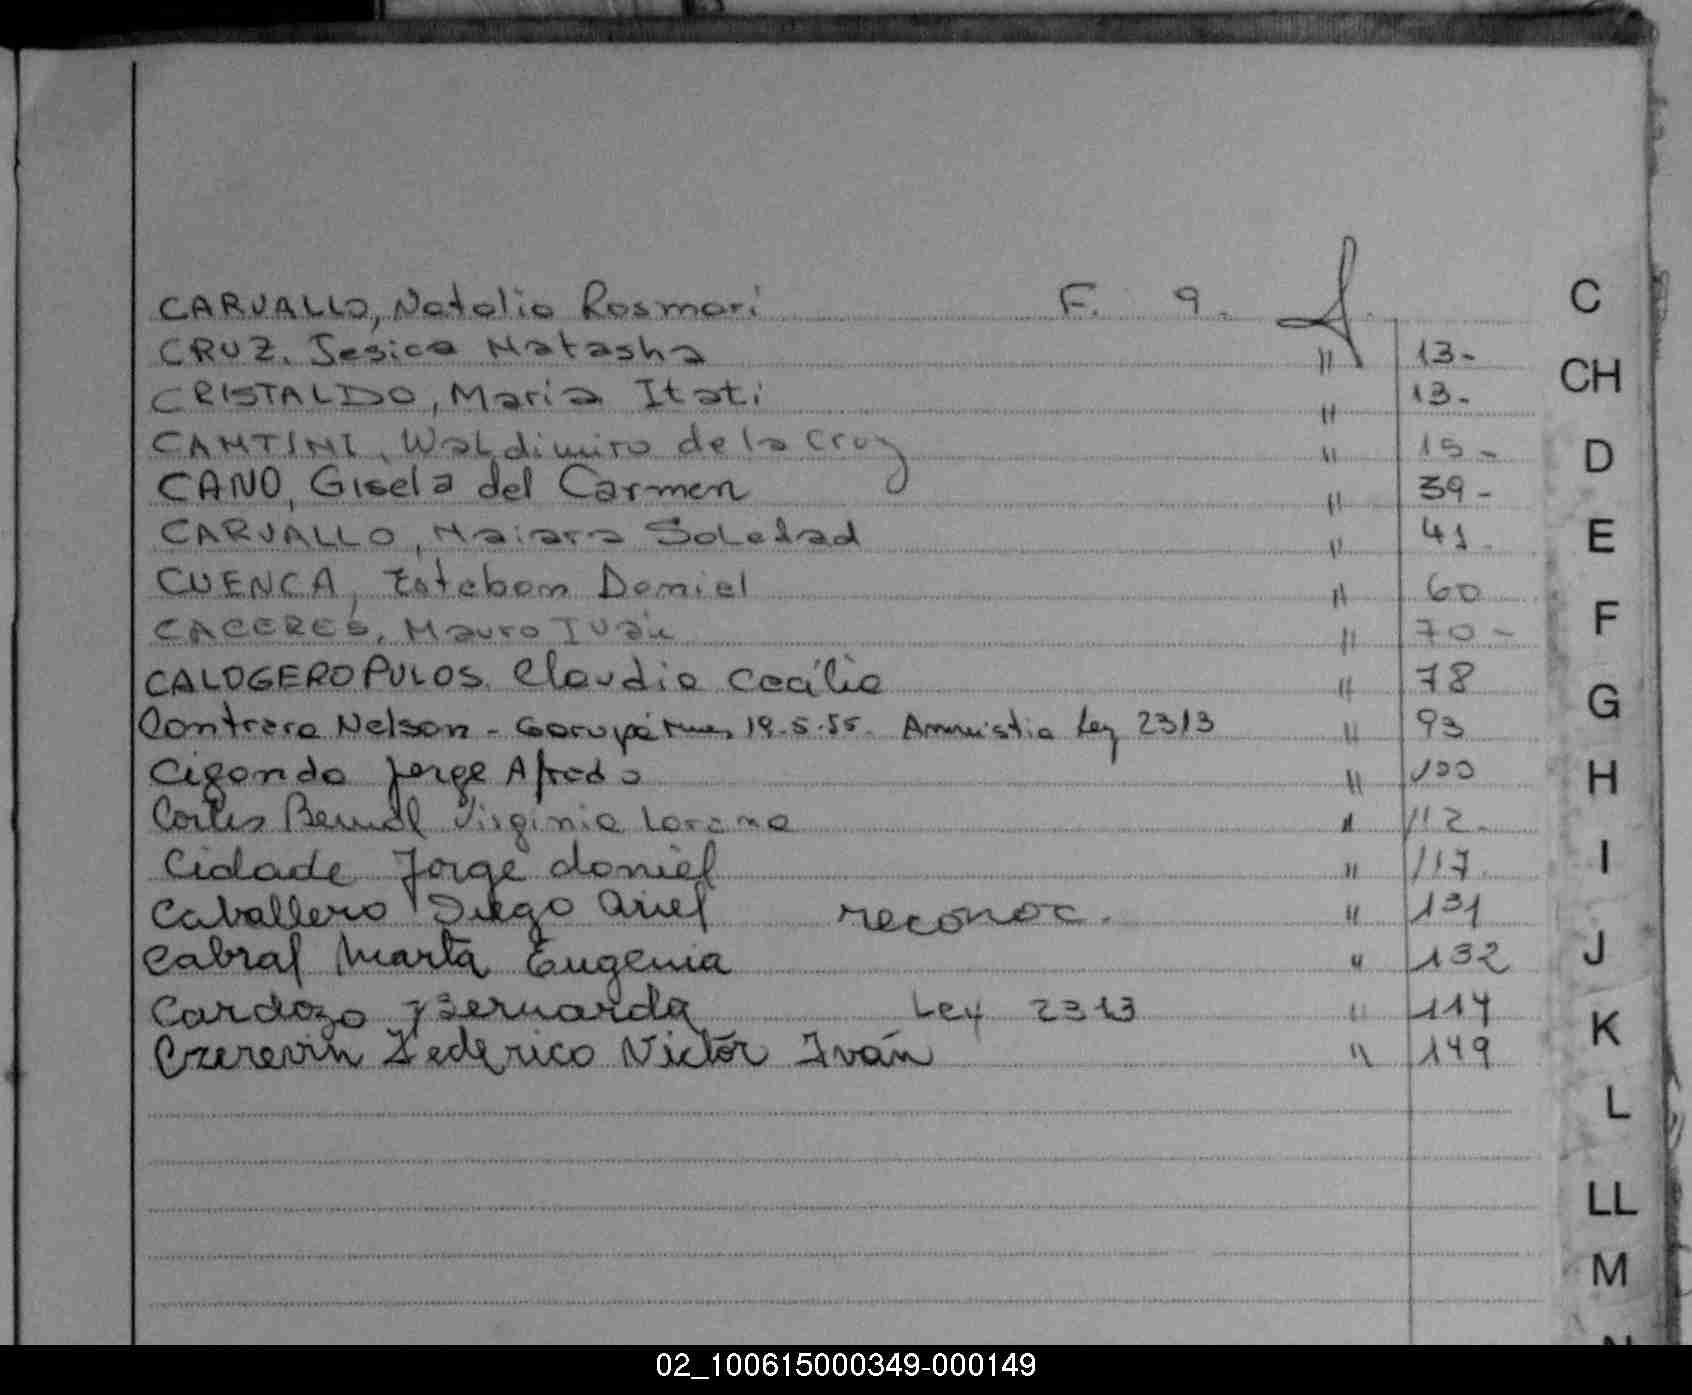 CARVALLO, Natalia Rosmari F. 9.
CRUZ. Jesica Natasha " 13-
CRISTALDO, Maria Itati " 13-
CANTINI, Waldimiro de la Cruz " 15-
CANO, Gisela del Carmen " 39-
CARVALLO, Naiara Soledad " 41.
CUENCA, Esteban Daniel " 60
CACERES, Mauro Iván " 70-
CALOGEROPULOS. Claudia Cecilia " 78
Contrera Nelson - 19-5-55. Amnistia Ley 2313 " 93
Cigonda Jorge Afredo " 100
Cortes Bernal Virginia Lorena " 112.
Cidade Jorge daniel " 117.
Caballero Diego Ariel reconoc. " 131
Cabral Marta Eugenia " 132
Cardozo Bernarda Ley 2313 " 114
Czerevin Federico Victor Iván " 149
C
CH
D
E
F
G
H
I
J
K
L
LL
M
02_100615000349-000149